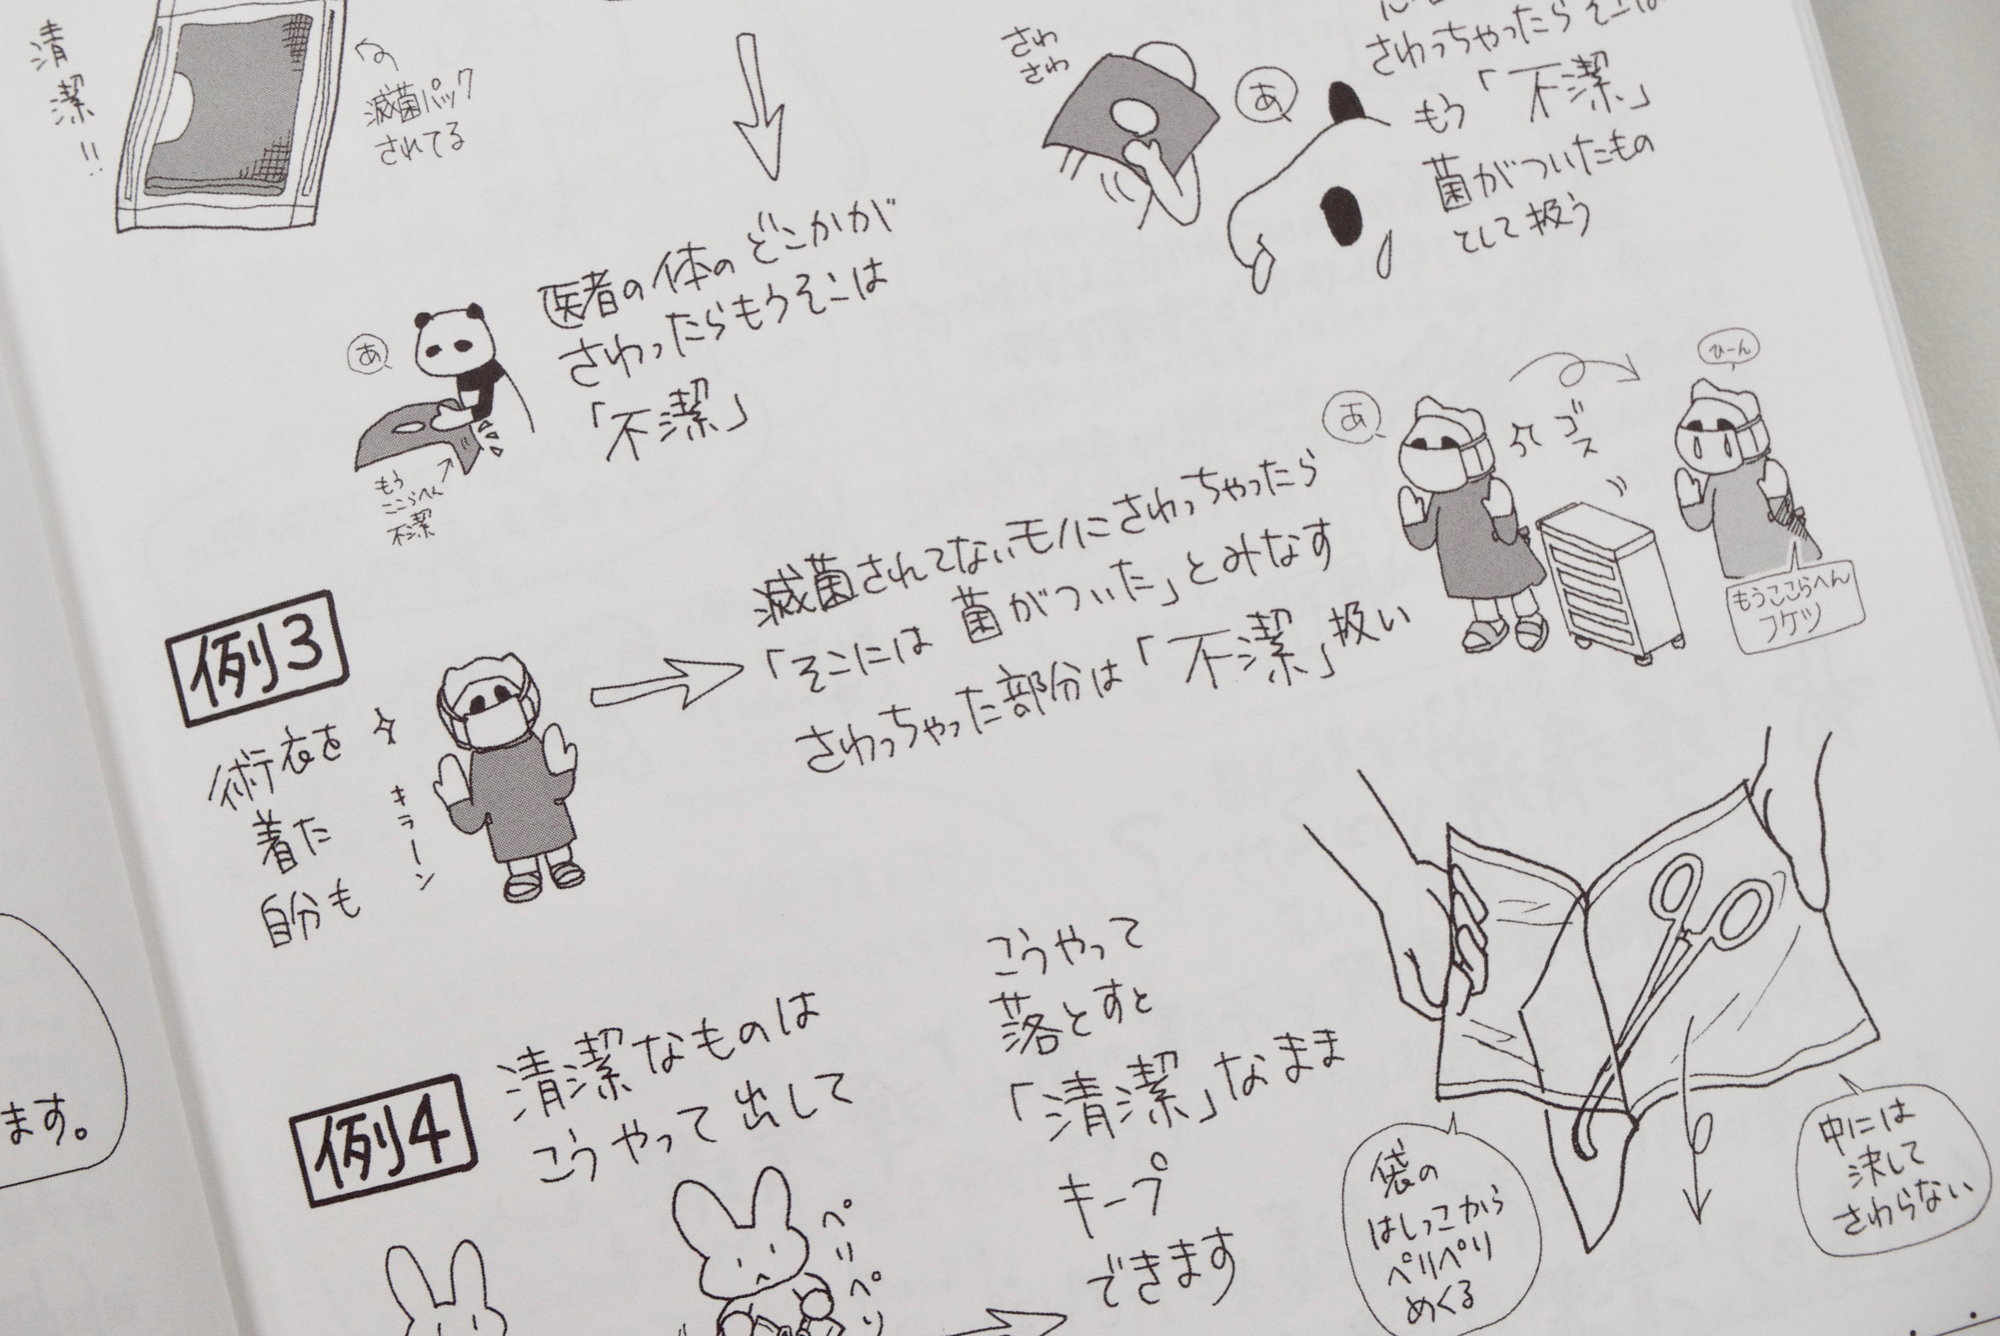 清潔!!
滅菌パック
されてる
さわ
さわ
あ
さわっちゃったらそこは
もう「不潔」
菌がついたもの
として扱う
医者の体のどこかが
さわったらもうそこは
「不潔」
あ
もう
ここらへん
不潔
例3
術衣を
着た
自分も
キラーン
滅菌されてないモノにさわっちゃったら
「そこには菌がついた」とみなす
さわっちゃった部分は「不潔」扱い
あ
ゴス
ひーん
もうここらへん
フケツ
例4
清潔なものは
こうやって出して
ペリペリ
こうやって
落とすと
「清潔」なまま
キープ
できます
袋の
はしっこから
ペリペリ
めくる
中には
決して
さわらない
ます。